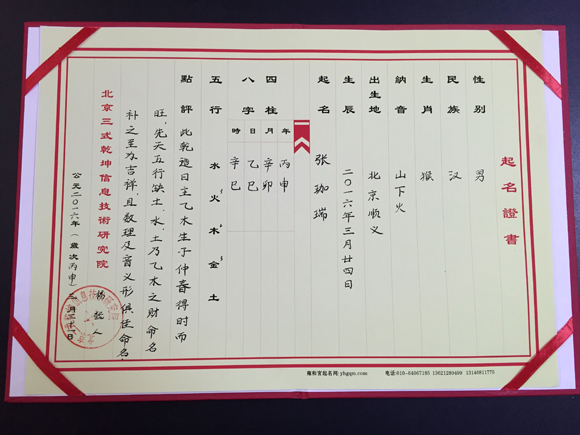 起名證書
性別 男
民族 汉
生肖 猴
納音 山下火
出生地 北京顺义
生辰 二〇一六年三月廿四日
起名 張珈瑞
四柱 年 月 日 時
八字 丙申 辛卯 乙巳 辛巳
五行 水 火 木 金 土
點評 此乾造日主乙木生于仲春得时而
旺，先天五行缺土、水，土乃乙木之财命名
补之至为吉祥，且数理及音义形俱佳命名，
北京三式乾坤信息技術研究院
公元二〇一六年（歲次丙申）
雍和宫起名网:yhgqm.com 电话:010-64067195 13621280499 13146811775